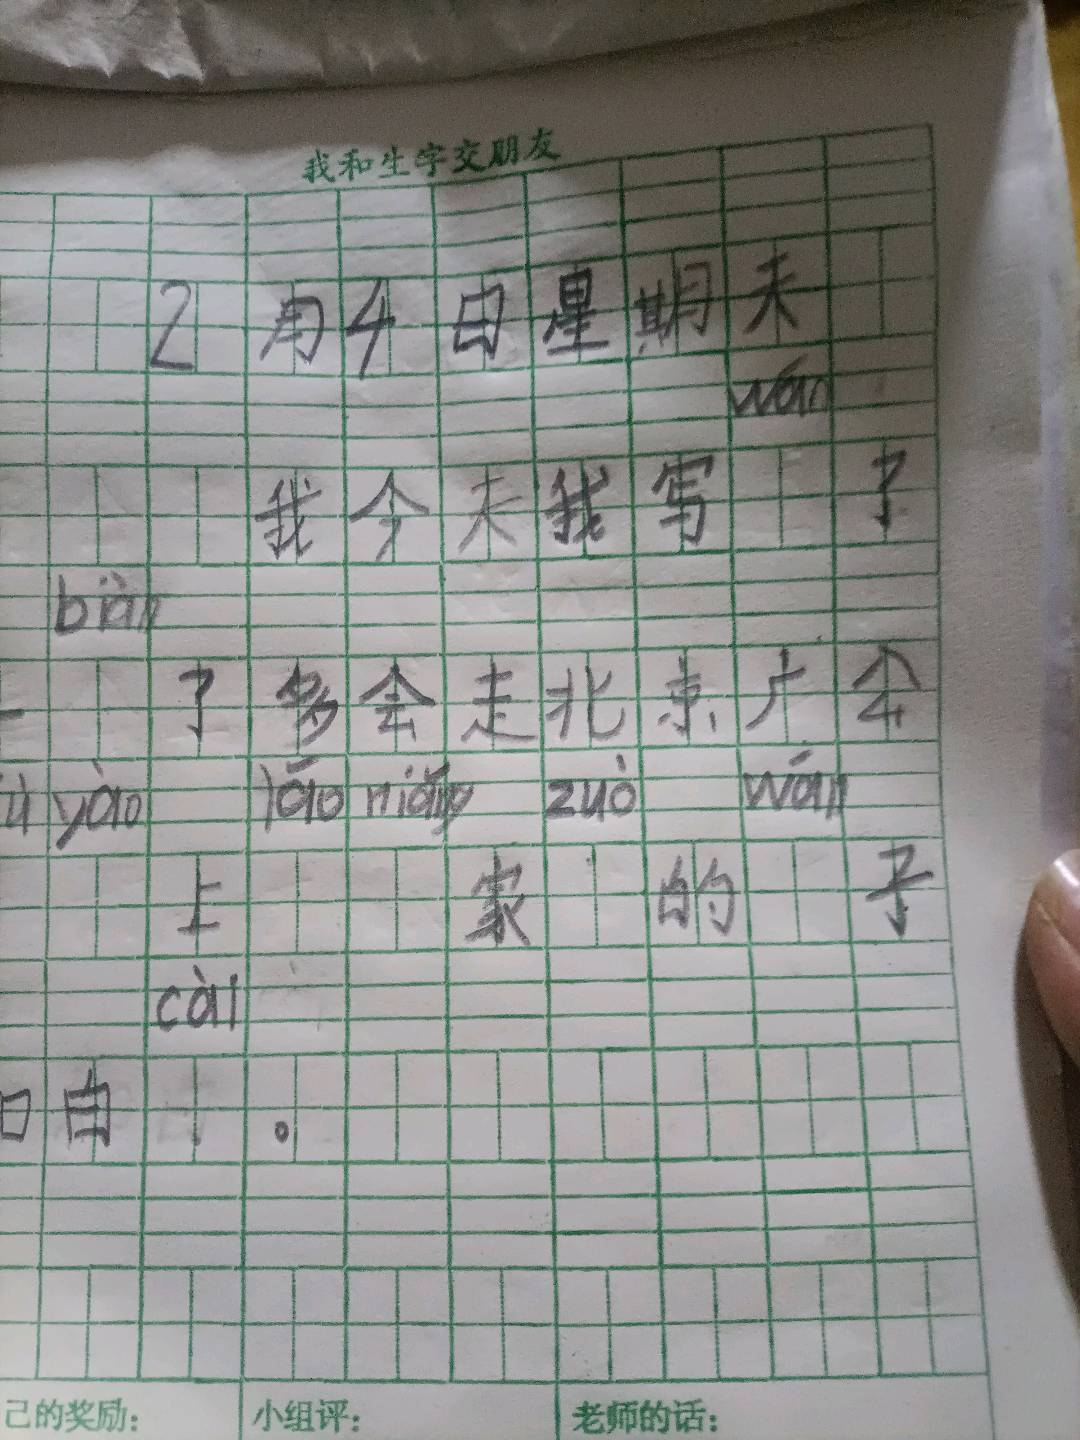 我和生字交朋友
2月4日星期未
wán
我今未我写 了
biàn
了多会走北京广公
yào lǎo niáng zuò wán
上 家 的 子
cài
口自 。
己的奖励: 小组评: 老师的话: